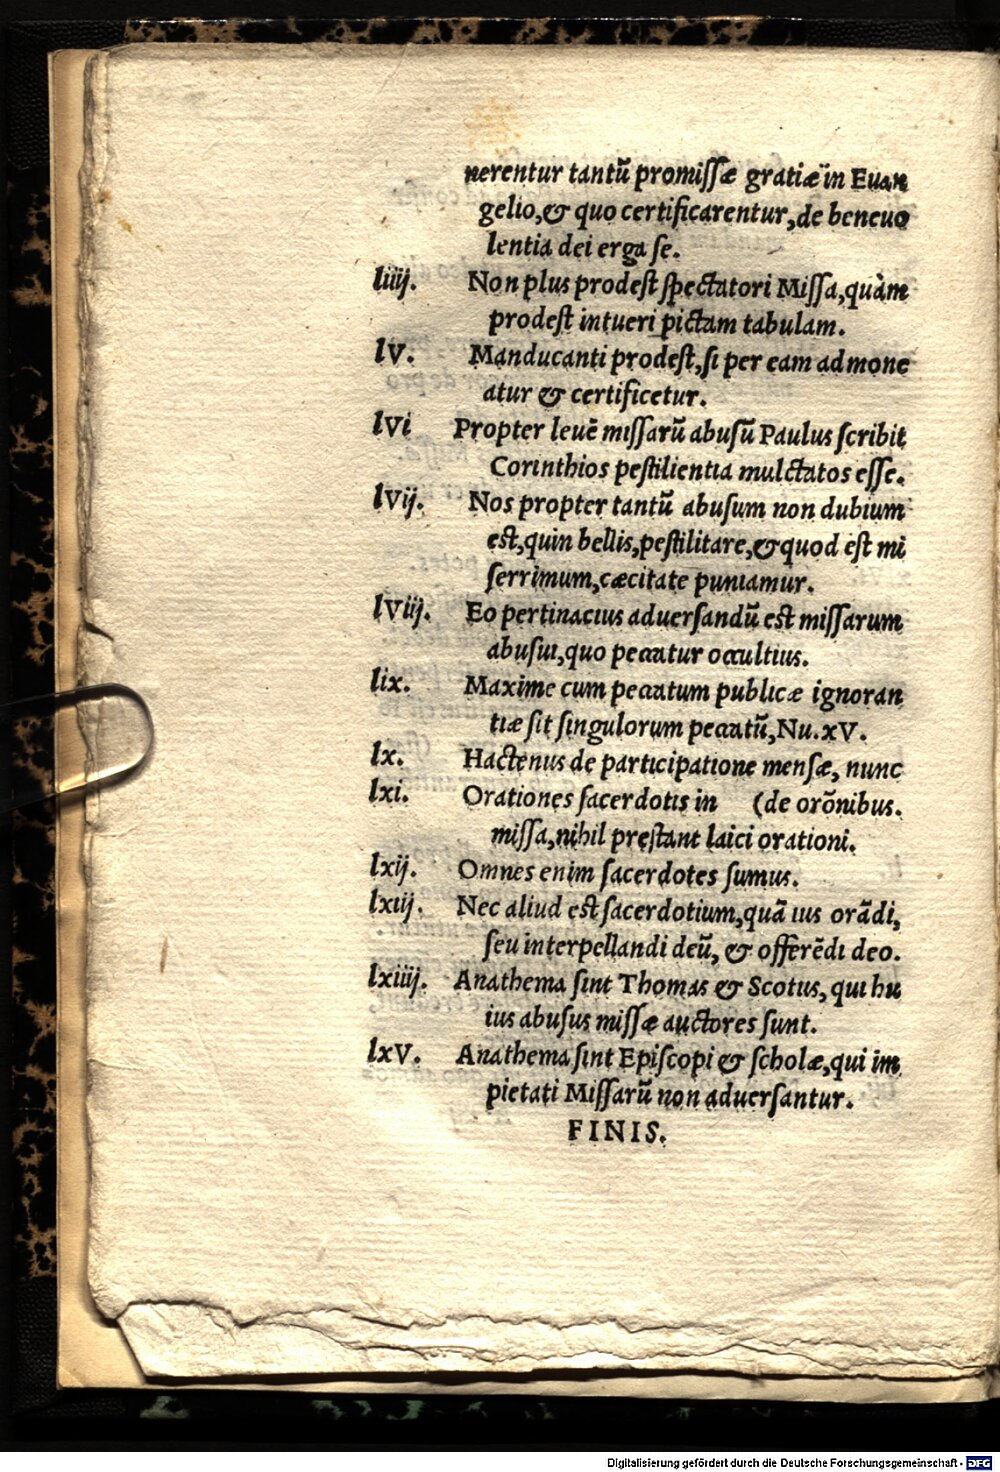 nerentur tantũ promissæ gratiæ in Euan
gelio,& quo certificarentur,de beneuo
lentia dei erga se.
liiij. Non plus prodest spectatori Missa,quàm
prodest intueri pictam tabulam.
lv. Manducanti prodest,si per eam admone
atur & certificetur.
lvi Propter leuẽ missarũ abusũ Paulus scribit
Corinthios pestilientia mulctatos esse.
lvij. Nos propter tantũ abusum non dubium
est,quin bellis,pestilitare,& quod est mi
serrimum,cæcitate puniamur.
lviij. Eo pertinacius aduersandũ est missarum
abusui,quo peccatur occultius.
lix. Maxime cum peccatum publicæ ignoran
tiæ sit singulorum peccatũ,Nu.xv.
lx. Hactenus de participatione mensæ, nunc
lxi. Orationes sacerdotis in (de orõnibus.
missa,nihil pręstant laici orationi.
lxij. Omnes enim sacerdotes sumus.
lxiij. Nec aliud est sacerdotium,quã ius orãdi,
seu interpellandi deũ, & offerẽdi deo.
lxiiij. Anathema sint Thomas & Scotus, qui hu
ius abusus missæ auctores sunt.
lxv. Anathema sint Episcopi & scholæ,qui im
pietati Missarũ non aduersantur.
FINIS.
Digitalisierung gefördert durch die Deutsche Forschungsgemeinschaft - DFG